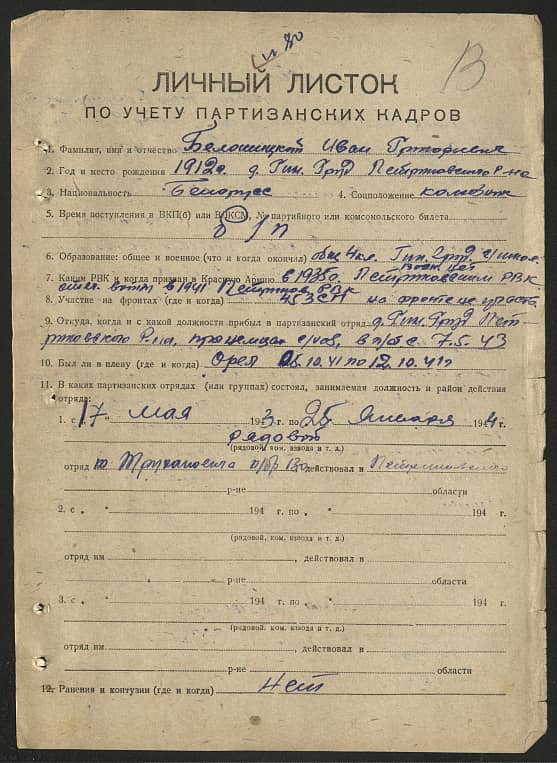 № 80
В
ЛИЧНЫЙ ЛИСТОК
ПО УЧЕТУ ПАРТИЗАНСКИХ КАДРОВ
1. Фамилия, имя и отчество Белошицкий Иван
2. Год и место рождения 1912 г. д. Гин. Груд Петриковского р-на
3. Национальность Белорус 4. Соцположение колхозн
5. Время поступления в ВКП(б) или ВЛКСМ, № партийного или комсомольского билета
б/п
6. Образование: общее и военное (что и когда окончил) общ 4 кл. Гин. Груд. школ.
воен нет
7. Каким РВК и когда призван в Красную Армию в 1935 г. Петриковским РВК
в 1941 Петриков РВК
8. Участие на фронтах (где и когда) 453 СП на фронте не участв
9. Откуда, когда и с какой должности прибыл в партизанский отряд д. Гин. Груд Пет-
риковского р-на, 7.5.43
10. Был ли в плену (где и когда) Орел 06.10.41 по 12.10.41 г
11. В каких партизанских отрядах (или группах) состоял, занимаемая должность и район действия
отряда:
1. с 17 " мая 1943 г. по 25 Января 1944 г.
рядовой
(рядовой, ком. взвода и т. д.)
отряд им , действовал в
р-не области
2. с " " 194 г. по " 194 г.
(рядовой, ком. взвода и т. д.)
отряд им , действовал в
р-не области
3. с " " 194 г. по " 194 г.
(рядовой, ком. взвода и т. д.)
отряд им , действовал в
р-не области
12. Ранения и контузии (где и когда) нет